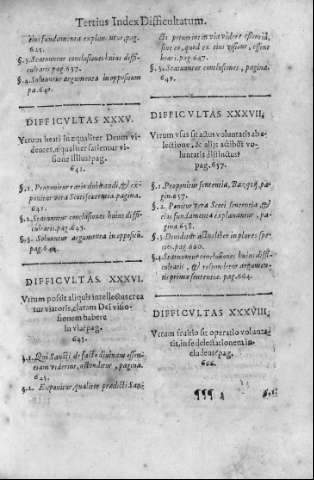 Tertius Index Difficultatum.
eius fundamenta explanantur, pag.
625.
§.3. Statuuntur conclusiones huius diffi-
cultatis pag. 637.
§.4. Soluuntur argumenta in oppositum
pa. 640.
DIFFICVLTAS XXXV.
Vtrum beati inæqualiter Deum vi-
deant, æqualiter satientur vi-
sione illius? pag.
641.
§.1. Proponitur ratio dubitandi, & ex-
ponitur vera Scoti sententia pagina.
641.
§.2. Statuuntur conclusiones huius diffi-
cultatis pag. 643.
§.3. Soluuntur argumenta in oppositũ,
pag. 644.
DIFFICVLTAS. XXXVI.
Vtrum possit aliquis intellectus crea
tur viatoris, claram Dei visio-
nem habere
in via? pag.
645.
§.1. Qui Sancti de facto diuinam essen-
tiam viderint, ostenditur, pagina.
645.
§.2. Exponitur, qualiter prædicti San-
cti
§.3. Statuuntur conclusiones, pagina.
649.
DIFFICVLTAS XXXVII,
Vtrum vsus sit actus voluntatis ab e-
lectione, & alijs actibus vo-
luntatis distinctus?
pag.
657.
§.1. Proponitur sententia, pa-
gina 657.
§.2. Ponitur vera Scoti sententia, &
eius fundamenta explanantur, pa-
gina 658.
§.3. Diuiditur actus in plures spe-
cies. pag. 660.
§.4. Statuuntur conclusiones huius diffi-
cultatis, & respondetur argumen-
tis primæ sententiæ.
DIFFICVLTAS XXXVIII,
Vtrum fruitio sit operatio volunta-
tis, in se delectationem in-
cludens? pag.
¶¶¶ 4